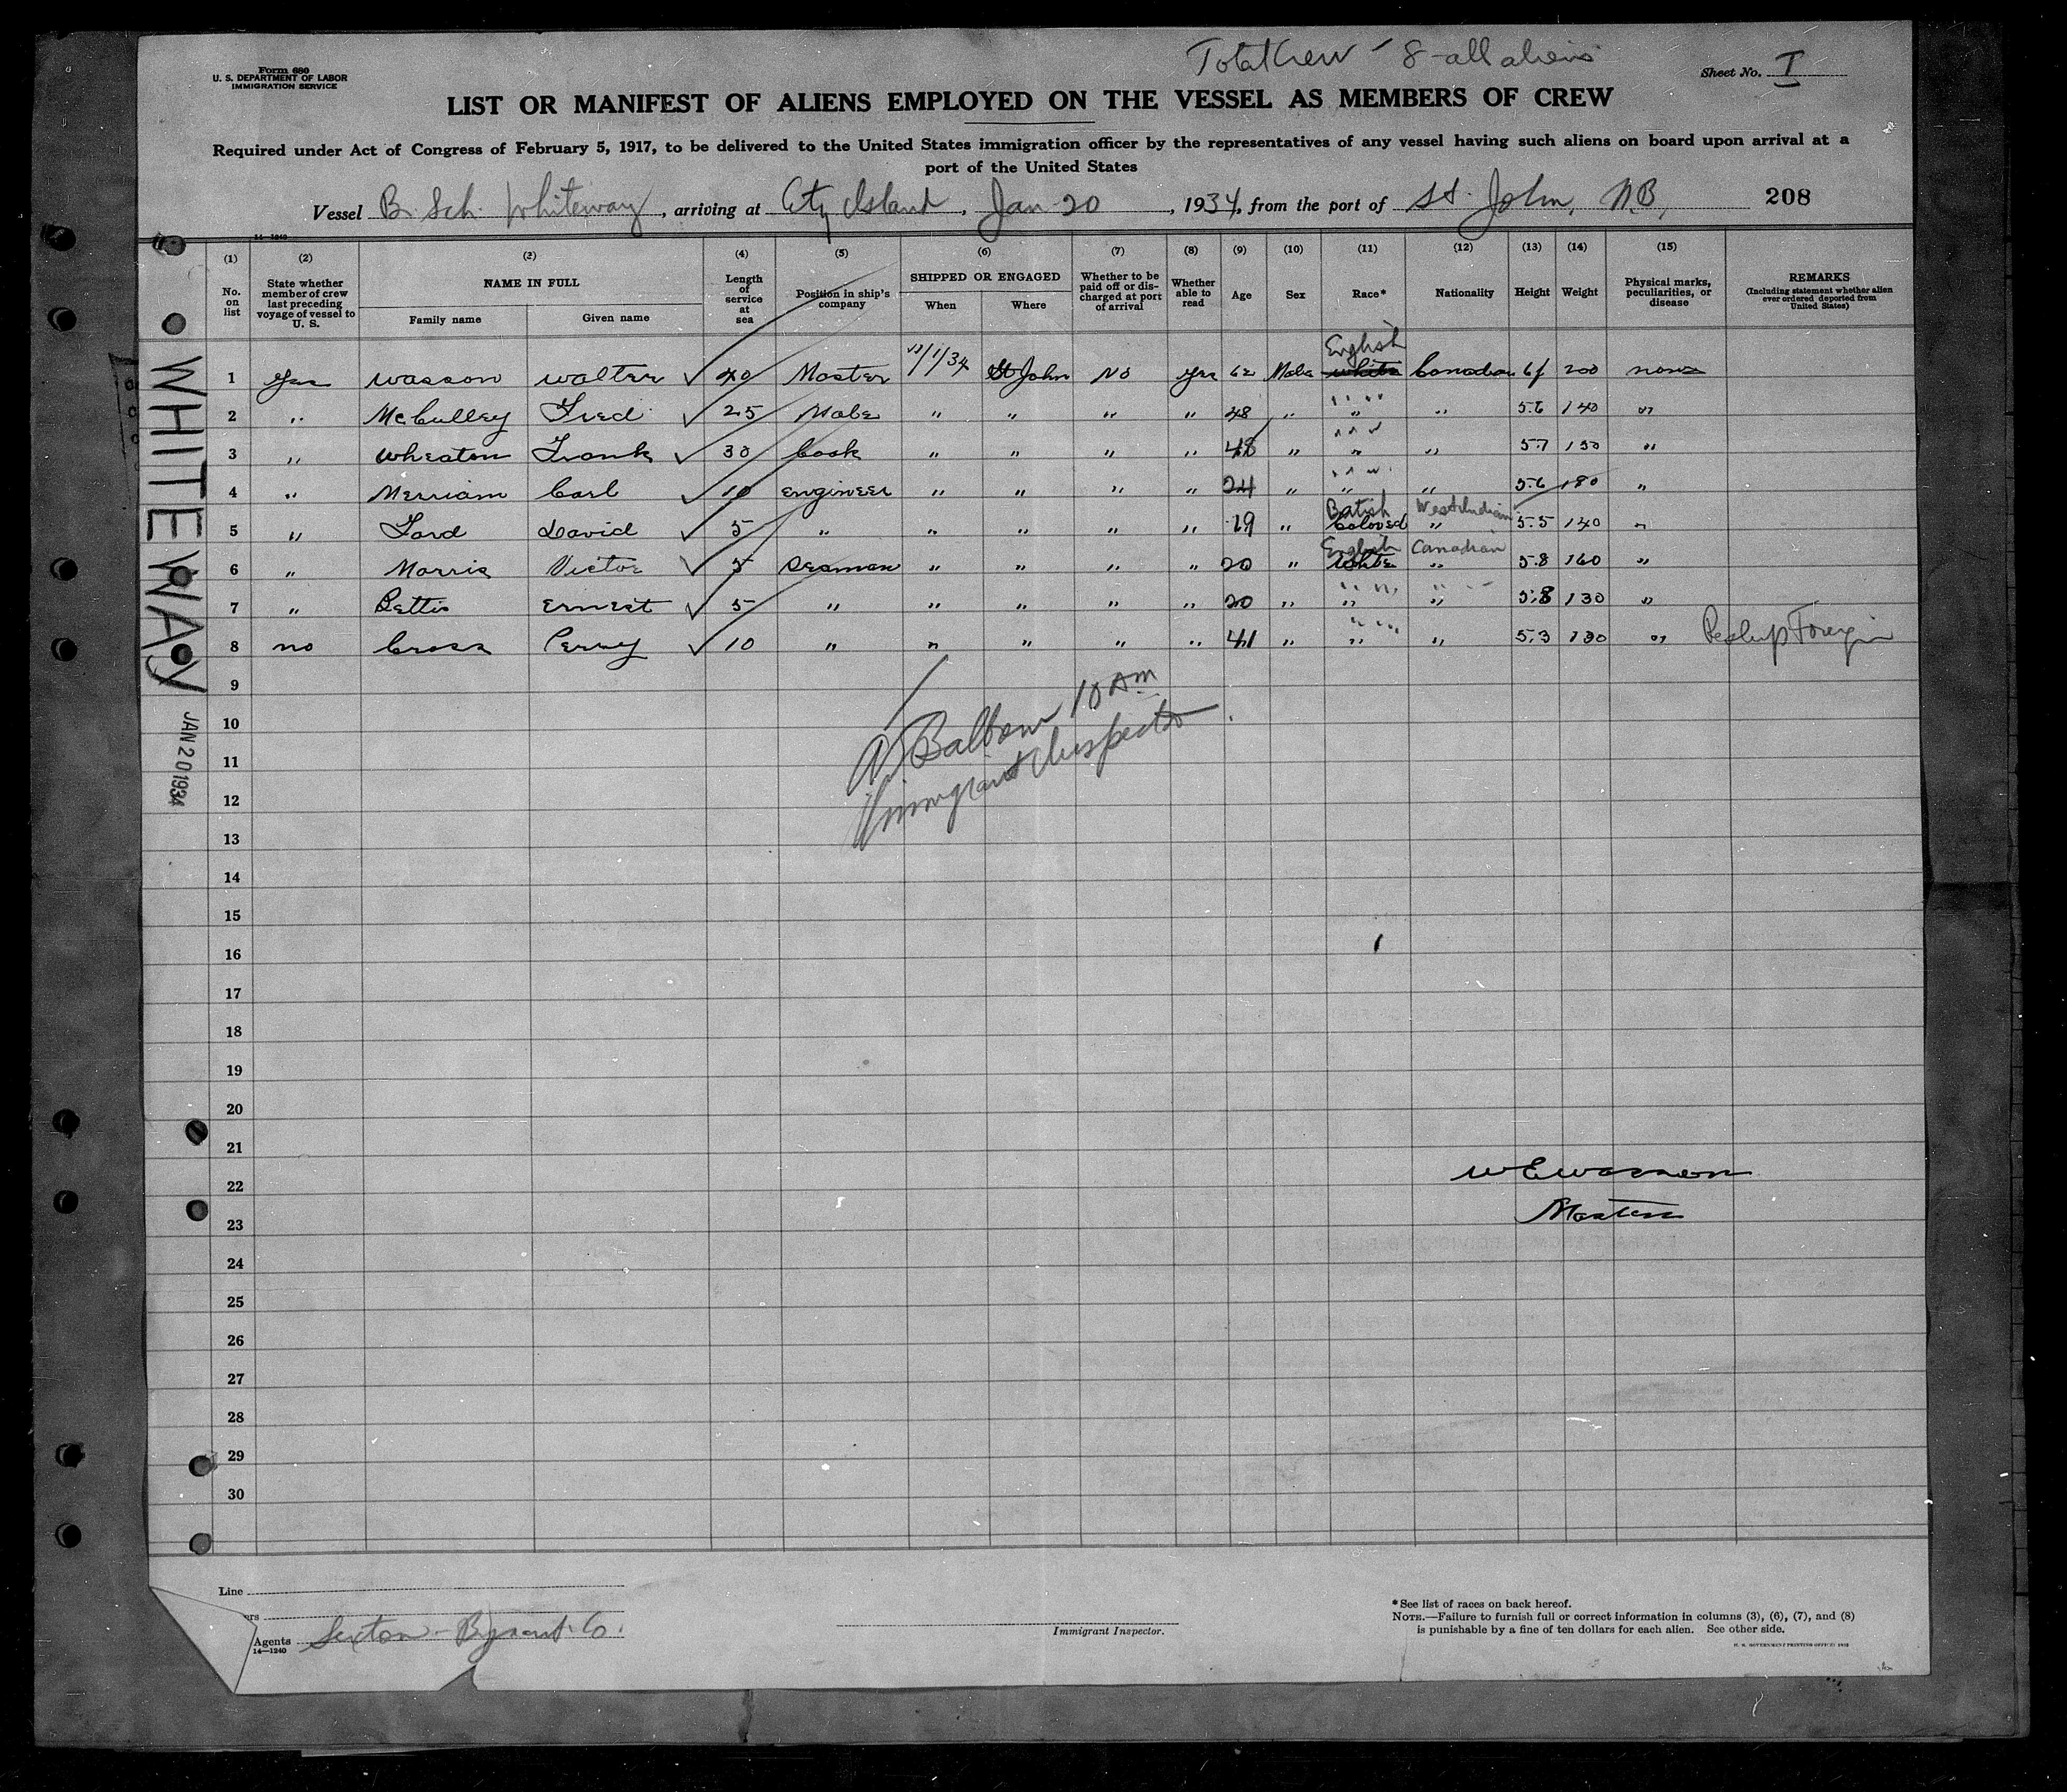 Total Crew - 8 - all aliens
Form 680
U. S. DEPARTMENT OF LABOR
IMMIGRATION SERVICE
Sheet No. I
LIST OR MANIFEST OF ALIENS EMPLOYED ON THE VESSEL AS MEMBERS OF CREW
Required under Act of Congress of February 5, 1917, to be delivered to the United States immigration officer by the representatives of any vessel having such aliens on board upon arrival at a
port of the United States
Vessel B. Sch. Whiteway, arriving at City Island, Jan 20, 1934, from the port of St. John, N.B. 208
14—1240
(1) (2) (3) (4) (5) (6) (7) (8) (9) (10) (11) (12) (13) (14) (15)
No. on list
State whether member of crew last preceding voyage of vessel to U. S.
NAME IN FULL
Family name Given name
Length of service at sea
Position in ship's company
SHIPPED OR ENGAGED
When Where
Whether to be paid off or discharged at port of arrival
Whether able to read
Age
Sex
Race*
Nationality
Height
Weight
Physical marks, peculiarities, or disease
REMARKS
(Including statement whether alien ever ordered deported from United States)
English
1 yes Wasson Walter ✓ 40 Master 1/34 St John No yes 62 Male white Canadian 6f 200 none
2 " McCulley Fred ✓ 25 Mate " " " " 48 " " " 5.6 140 "
3 " Wheaton Frank ✓ 30 Cook " " " " 48 " " " 5.7 150 "
4 " Merriam Carl ✓ 10 Engineer " " " " 24 " " " 5.6 180 "
West Indian
5 " Ford David ✓ 5 " " " " " 19 " Colored " 5.5 140 "
English Canadian
6 " Morris Victor ✓ 5 Seaman " " " " 20 " White " 5.8 160 "
7 " Bettis Ernest ✓ 5 " " " " " 20 " " " 5.8 130 "
8 no Cross Percy ✓ 10 " " " " " 41 " " " 5.3 130 " Foreign
9
10
11
12
13
14
15
16
17
18
19
20
21
22
23
24
25
26
27
28
29
30
10 AM
Immigrant Inspector
WHITEWAY
JAN 20 1934
W E Wasson
Master
Line
ers
Agents Sexton - Co.
14—1240
Immigrant Inspector.
*See list of races on back hereof.
NOTE.—Failure to furnish full or correct information in columns (3), (6), (7), and (8)
is punishable by a fine of ten dollars for each alien. See other side.
U. S. GOVERNMENT PRINTING OFFICE